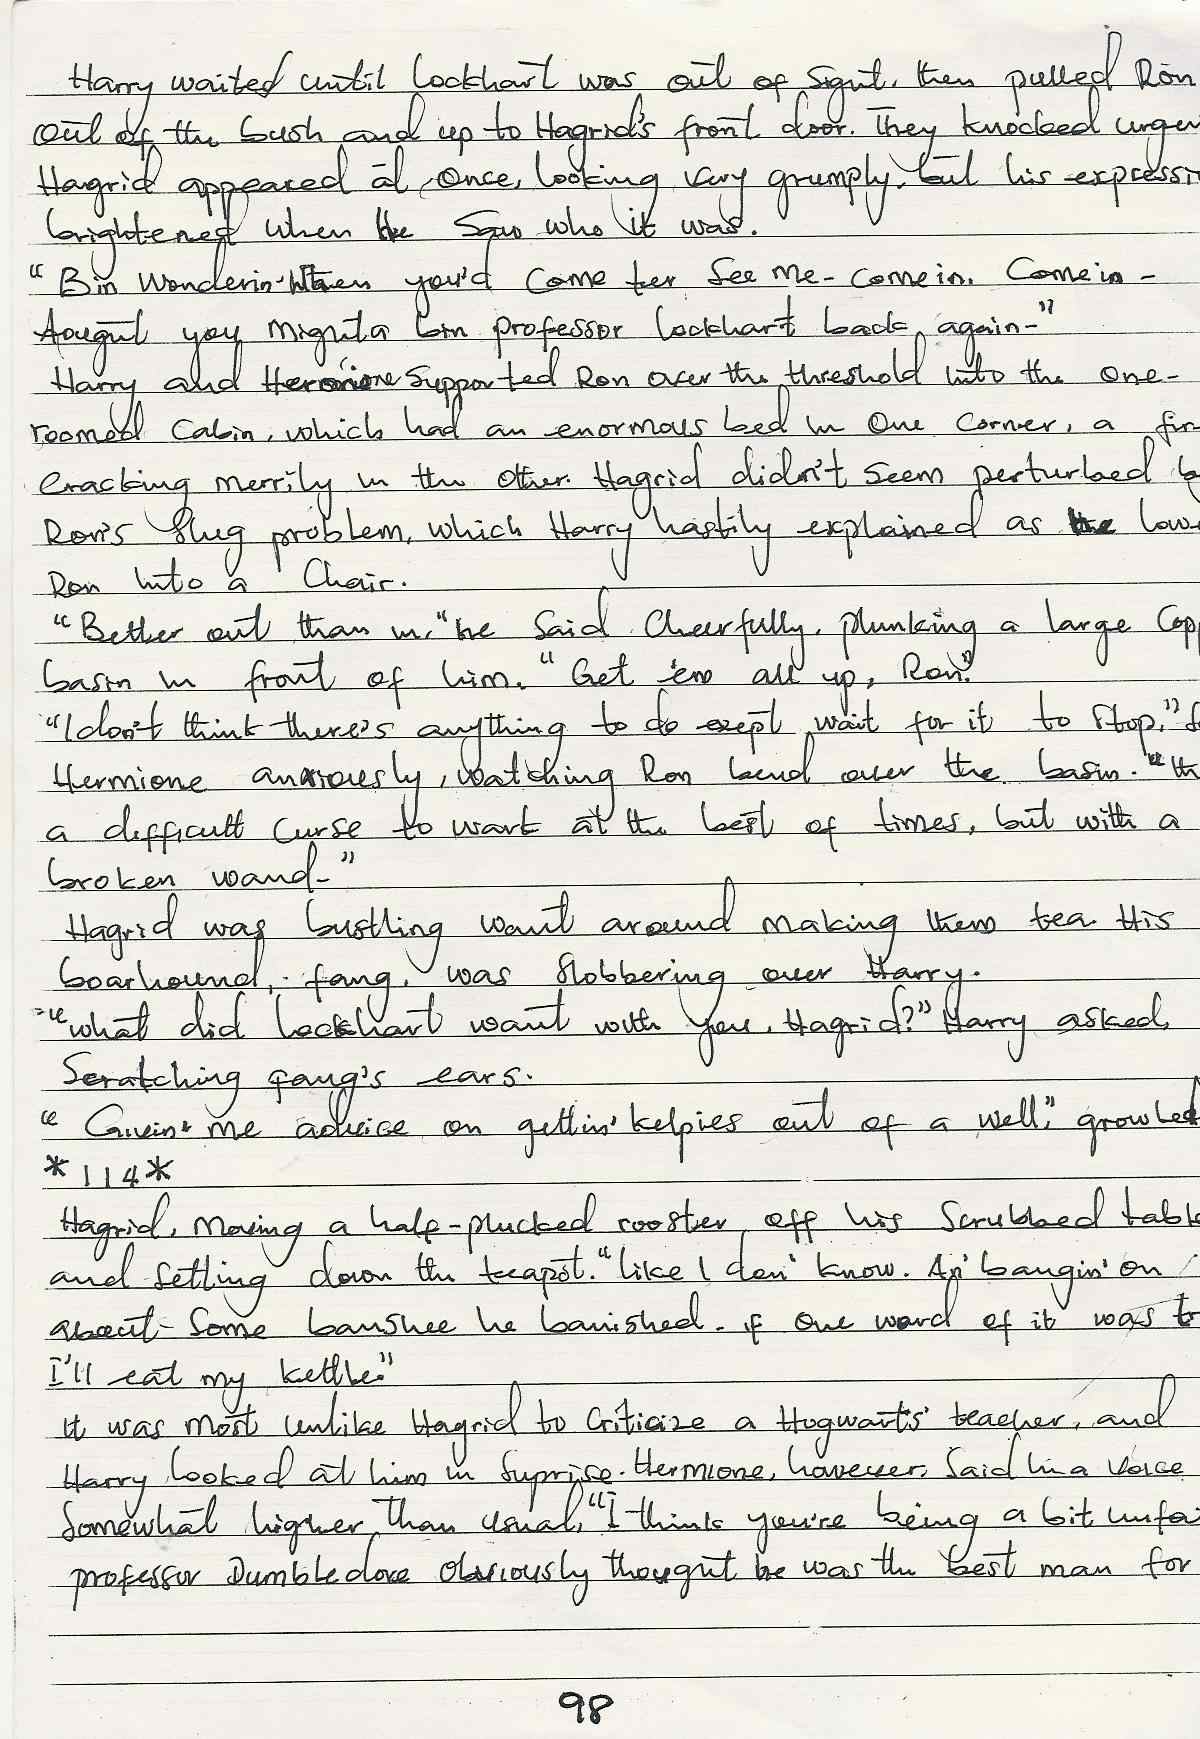 Harry waited until Lockhart was out of sight, then pulled Ron
out of the bush and up to Hagrid's front door. They knocked urgen
Hagrid appeared at once, looking very grumply, but his expressi
brightened when he saw who it was.
"Bin wonderin' when you'd come ter see me- come in. Come in -
Aougut you mighta bin professor Lockhart back again-"
Harry and Hermione supported Ron over the threshold into the one-
roomed cabin, which had an enormous bed in one corner, a fir
cracking merrily in the other. Hagrid didn't seem perturbed b
Ron's slug problem, which Harry hastily explained as he lowe
Ron into a chair.
"Better out than in," he said cheerfully, plunking a large copp
basin in front of him. "Get 'em all up, Ron."
"I don't think there's anything to do exept wait for it to stop," s
Hermione anxiously, watching Ron bend over the basin. "th
a difficult curse to work at the best of times, but with a
broken wand-"
Hagrid was bustling want around making them tea. His
boarhound, fang, was slobbering over Harry.
"what did Lockhart want with you, Hagrid?" Harry asked,
Scratching fang's ears.
"Givin' me advice on gettin' kelpies out of a well," growled
*114*
Hagrid, moving a half-plucked rooster off his scrubbed tabl
and setting down the teapot. "like I don' know. An' bangin' on
about some banshee he banished. if one word of it was t
I'll eat my kettle."
it was most unlike Hagrid to criticize a Hogwarts' teacher, and
Harry looked at him in suprise. Hermione, however, said in a voice
somewhat higher than usual, "I think you're being a bit unfai
professor Dumbledore obviously thought he was the best man for
98